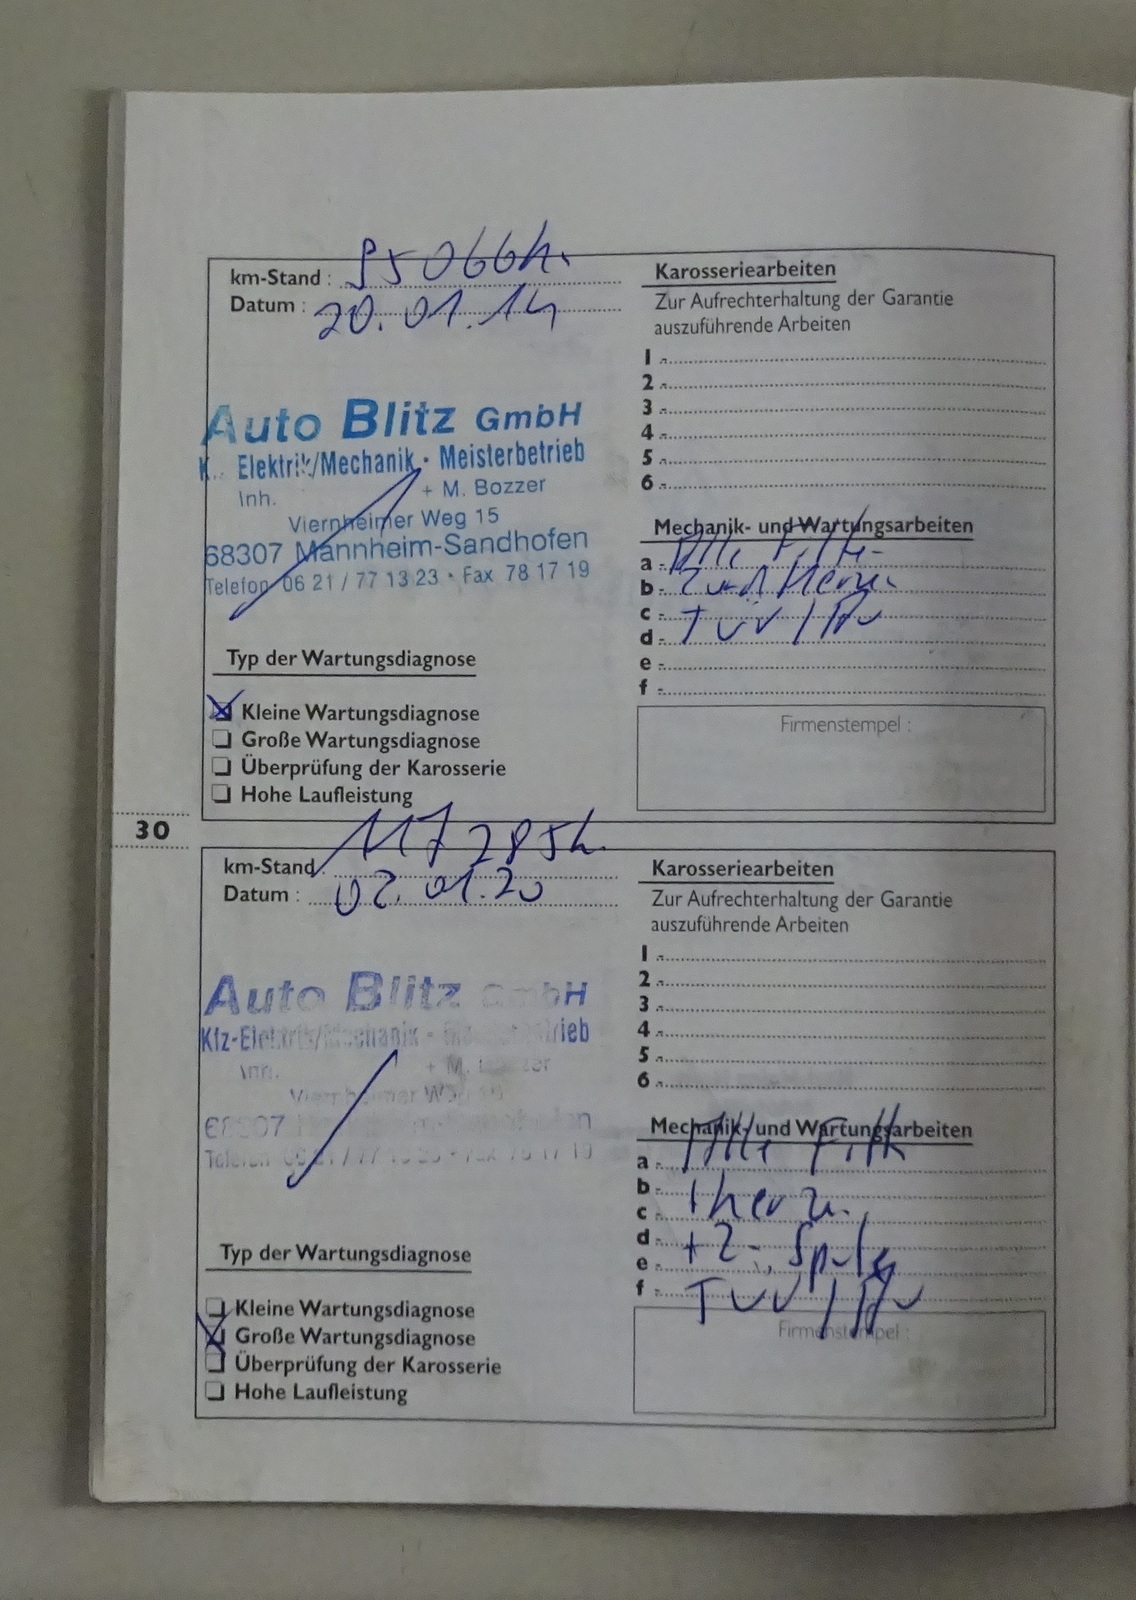 km-Stand : 95066k.
Datum : 20.01.14
Auto Blitz GmbH
Elektrik/Mechanik • Meisterbetrieb
Inh. + M. Bozzer
Viernheimer Weg 15
68307 Mannheim-Sandhofen
Telefon 06 21 / 77 13 23 • Fax 78 17 19
Typ der Wartungsdiagnose
Kleine Wartungsdiagnose
Große Wartungsdiagnose
Überprüfung der Karosserie
Hohe Laufleistung
Karosseriearbeiten
Zur Aufrechterhaltung der Garantie
auszuführende Arbeiten
1
2
3
4
5
6
Mechanik- und Wartungsarbeiten
a Alle Filter
b
c TüV / AU
d
e
f
Firmenstempel :
30
km-Stand : 117285k.
Datum : 02.01.20
Auto Blitz GmbH
Kfz-Elektrik/Mechanik • Meisterbetrieb
Inh. + M. Bozzer
Viernheimer Weg
68307
Telefon 06 21 / 77 13 23 • Fax 78 17 19
Typ der Wartungsdiagnose
Kleine Wartungsdiagnose
Große Wartungsdiagnose
Überprüfung der Karosserie
Hohe Laufleistung
Karosseriearbeiten
Zur Aufrechterhaltung der Garantie
auszuführende Arbeiten
1
2
3
4
5
6
Mechanik- und Wartungsarbeiten
a Alle Filter
b
c
d
e
f TüV / AU
Firmenstempel :